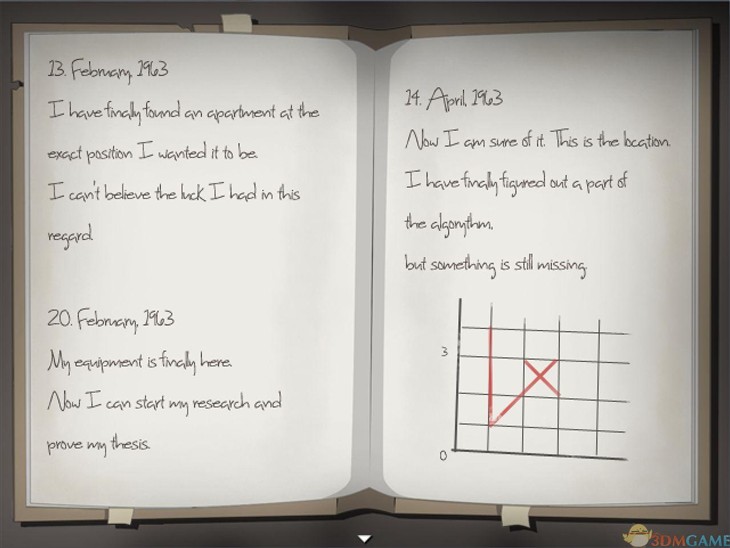 13. February, 1963
I have finally found an apartment at the
exact position I wanted it to be.
I can't believe the luck I had in this
regard.
20. February, 1963
My equipment is finally here.
Now I can start my research and
prove my thesis.
14. April, 1963
Now I am sure of it. This is the location.
I have finally figured out a part of
the algorythm,
but something is still missing.
3
0
3DMGAME